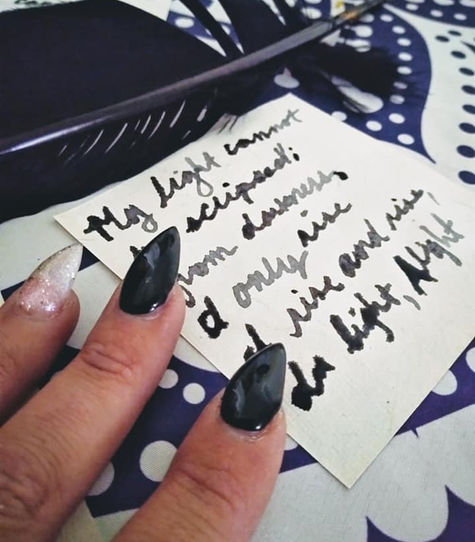 My light cannot
eclipsed;
from darkness,
I only rise
I rise and rise,
In light, Alight